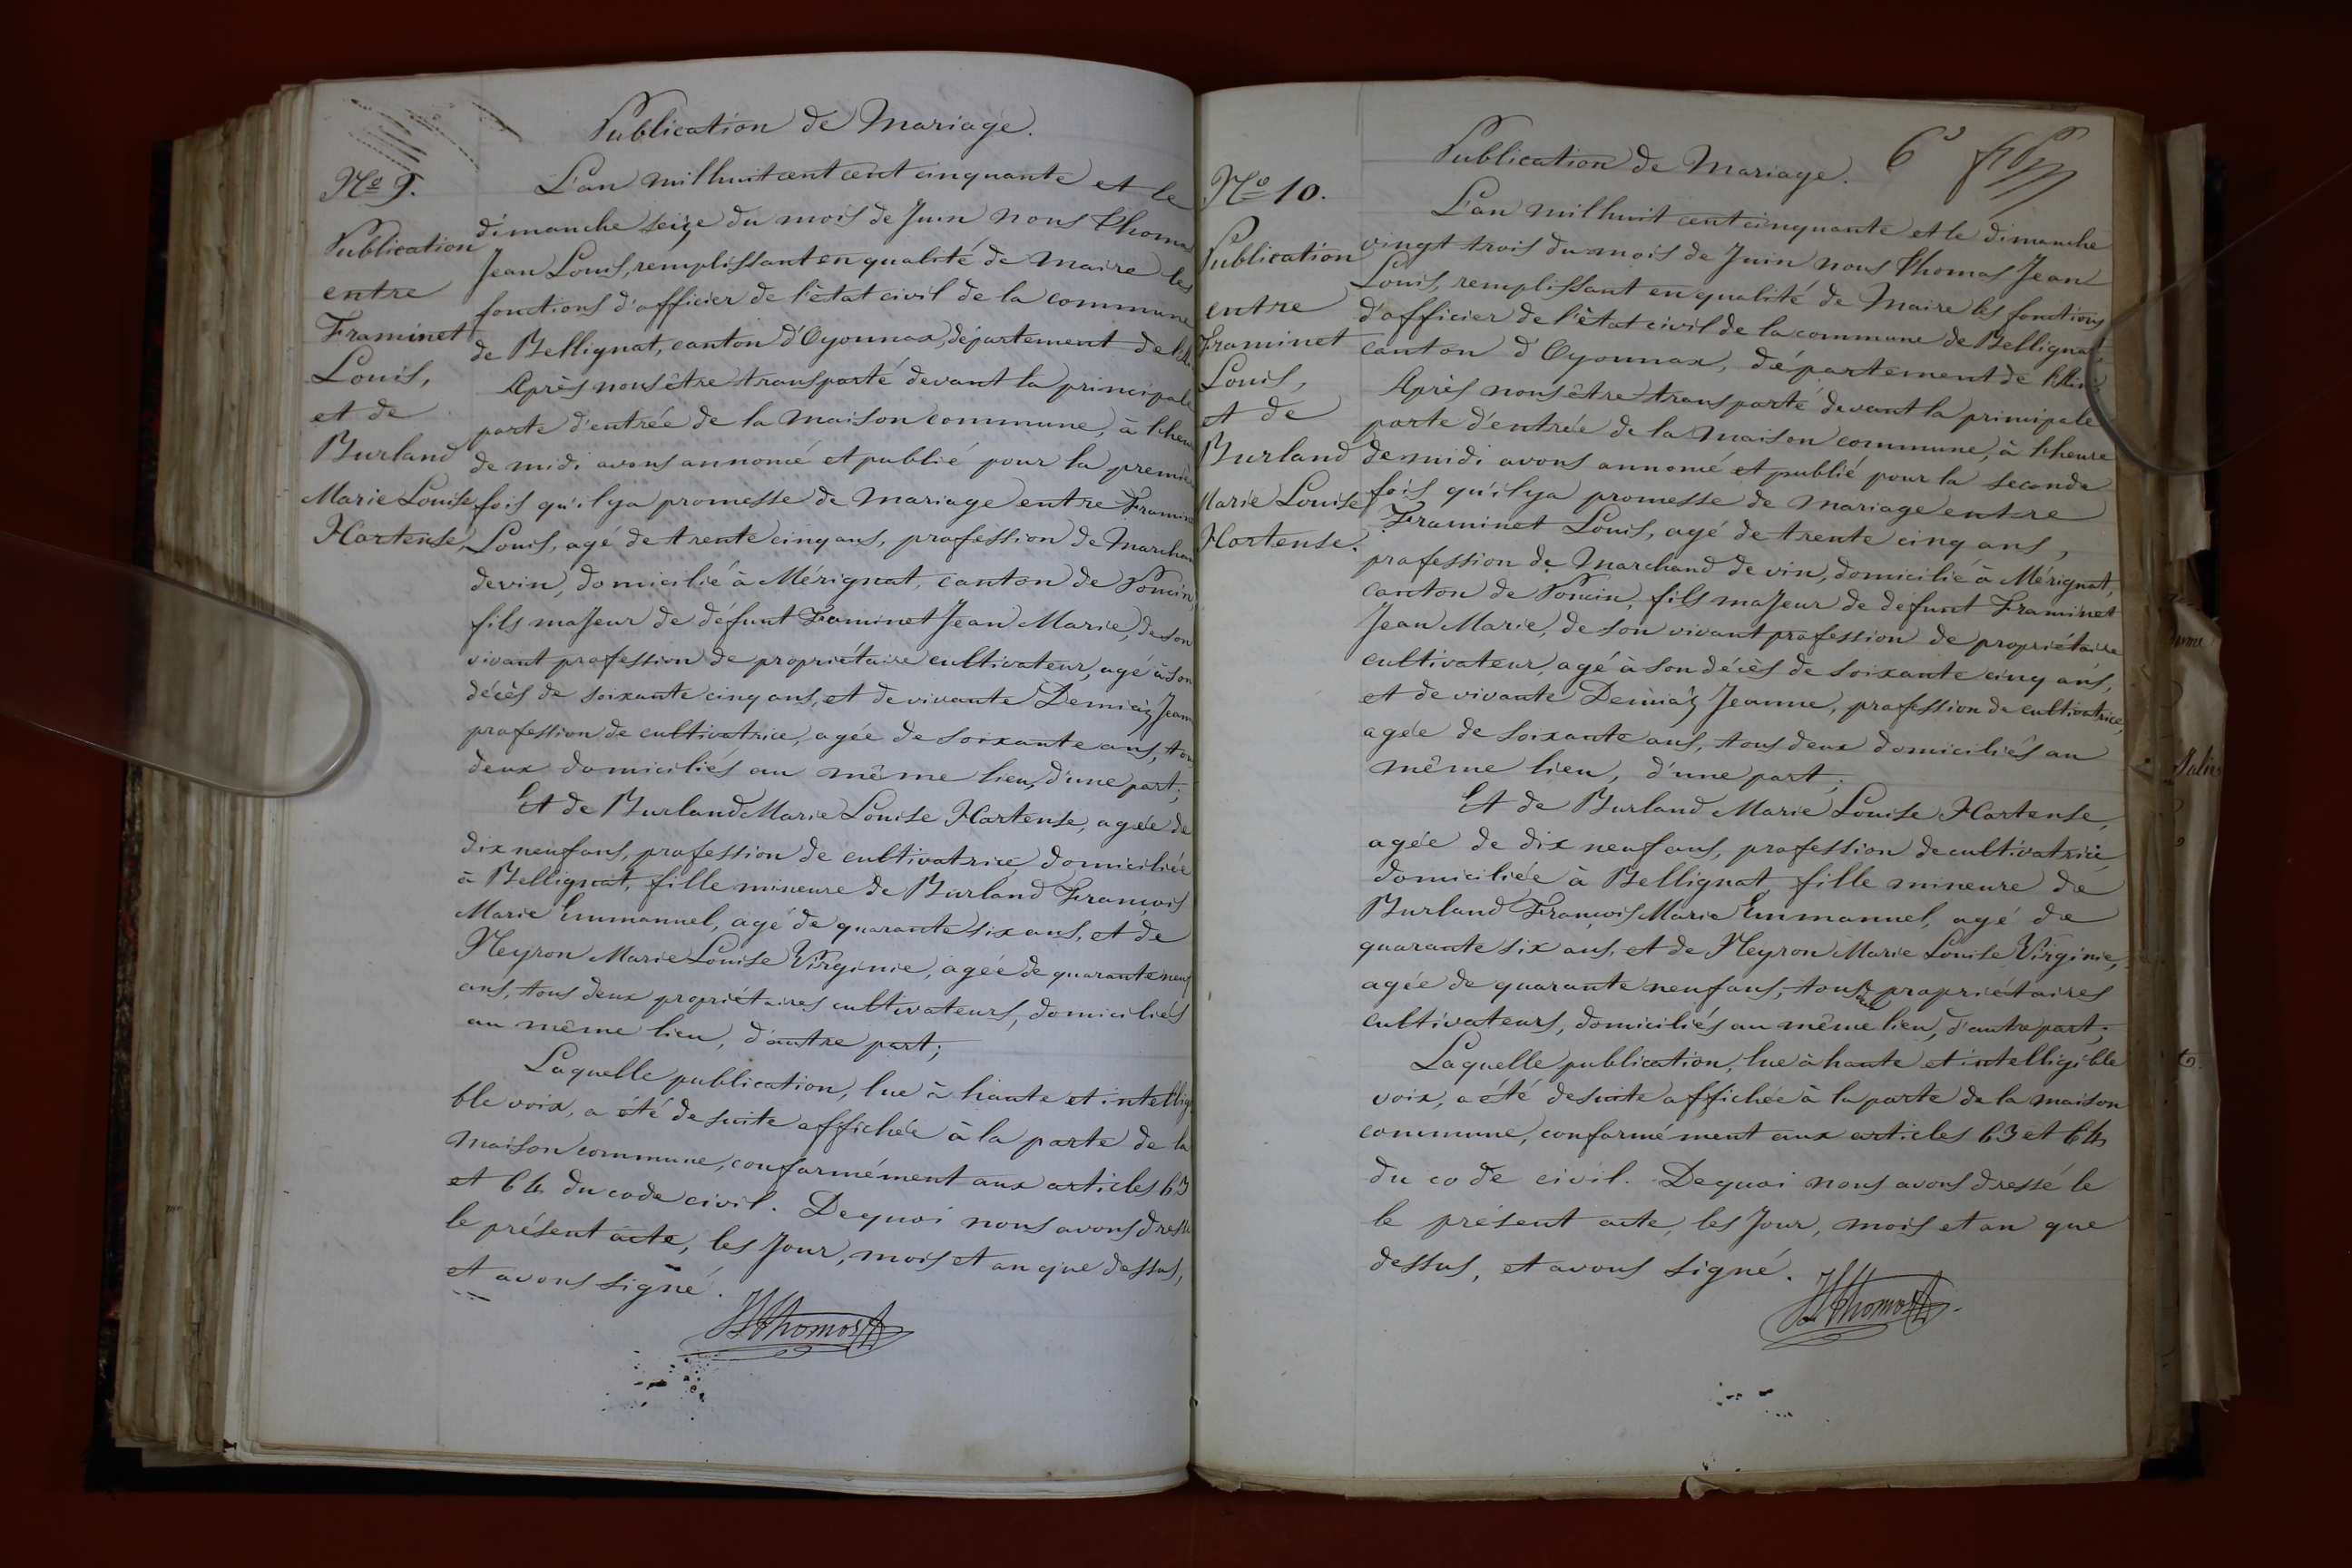 Publication de Mariage.
Nº 9.
Publication
entre
Framinet
Louis,
et de
Burland
Marie Louise
Hortense,
L'an mil huit cent cent cinquante et le
dimanche seize du mois de Juin nous Thomas
Jean Louis, remplissant en qualité de Maire les
fonctions d'officier de l'état civil de la commune
de Bellignat, canton d'Oyonnax, département de l'Ain.
Après nous être transporté devant la principale
porte d'entrée de la maison commune, à l'heure
de midi avons annoncé et publié pour la première
fois qu'il y a promesse de mariage entre Framinet
Louis, agé de trente cinq ans, profession de Marchand
de vin, domicilié à Mérignat, canton de Poncin,
fils majeur de défunt Framinet Jean Marie, de son
vivant profession de propriétaire cultivateur, agé à son
décès de soixante cinq ans, et de vivante Demiaz Jeanne
profession de cultivatrice, agée de soixante ans, tous
deux domiciliés au même lieu, d'une part;
Et de Burland Marie Louise Hortense, agée de
dix neuf ans, profession de cultivatrice, domiciliée
à Bellignat, fille mineure de Burland François
Marie Emmanuel, agé de quarante six ans, et de
Neyron Marie Louise Virginie, agée de quarante neuf
ans, tous deux propriétaires cultivateurs, domiciliés
au même lieu, d'autre part;
Laquelle publication, lue à haute et intelligi
ble voix, a été de suite affichée à la porte de la
maison commune, conformément aux articles 63
et 64 du code civil. De quoi nous avons dressé
le présent acte, les Jour, mois et an que dessus,
et avons signé.
JLThomas
Publication de Mariage.
6
Nº 10.
Publication
entre
Framinet
Louis,
et de
Burland
Marie Louise
Hortense.
L'an mil huit cent cinquante et le dimanche
vingt trois du mois de Juin nous Thomas Jean
Louis, remplissant en qualité de Maire les fonctions
d'officier de l'état civil de la commune de Bellignat,
canton d'Oyonnax, département de l'Ain.
Après nous être transporté devant la principale
porte d'entrée de la maison commune, à l'heure
de midi avons annoncé et publié pour la seconde
fois qu'il y a promesse de mariage entre
Framinet Louis, agé de trente cinq ans,
profession de Marchand de vin, domicilié à Mérignat,
canton de Poncin, fils majeur de défunt Framinet
Jean Marie, de son vivant profession de propriétaire
cultivateur, agé à son décès de soixante cinq ans,
et de vivante Demiaz Jeanne, profession de cultivatrice,
agée de soixante ans, tous deux domiciliés au
même lieu, d'une part;
Et de Burland Marie Louise Hortense,
agée de dix neuf ans, profession de cultivatrice,
domiciliée à Bellignat, fille mineure de
Burland François Marie Emmanuel, agé de
quarante six ans, et de Neyron Marie Louise Virginie,
agée de quarante neuf ans, tous deux propriétaires
cultivateurs, domiciliés au même lieu, d'autre part;
Laquelle publication, lue à haute et intelligible
voix, a été de suite affichée à la porte de la maison
commune, conformément aux articles 63 et 64
du code civil. De quoi nous avons dressé le
le présent acte, les Jour, mois et an que
dessus, et avons signé.
JLThomas